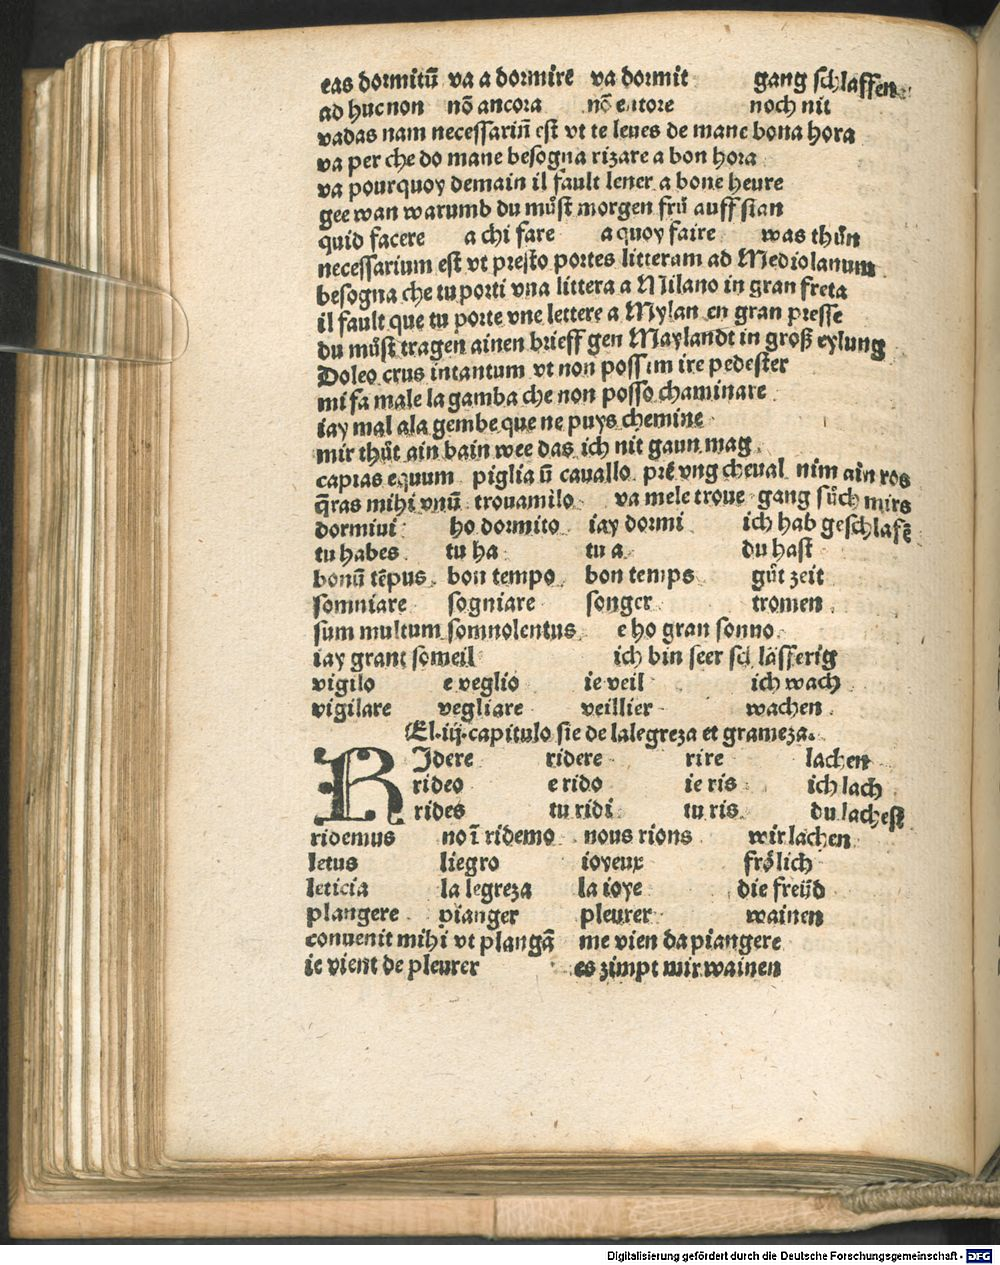 eas dormitū va a dormire va dormit gang schlaffen
ad huc non nō ancora nō encore noch nit
vadas nam necessariū est vt te leues de mane bona hora
va per che do mane besogna rizare a bon hora
va pourquoy demain il fault lener a bone heure
gee wan warumb du můst morgen frů auff stan
quid facere a chi fare a quoy faire was thůn
necessarium est vt presto portes litteram ad Mediolanum
besogna che tu porti vna littera a Milano in gran freta
il fault que tu porte vne lettere a Mylan en gran presse
du můst tragen ainen brieff gen Maylandt in groß eylung
Doleo crus intantum vt non possim ire pedester
mi fa male la gamba che non posso chaminare
iay mal ala gembe que ne puys chemine
mir thůt ain bain wee das ich nit gaun mag
capias equum piglia ū cauallo prē vng cheual nim ain ros
q̄ras mihi vnū trouamilo va mele troue gang sůch mirs
dormiui ho dormito iay dormi ich hab geschlafē
tu habes tu ha tu a du hast
bonū tēpus bon tempo bon temps gůt zeit
somniare sogniare songer tromen
sum multum somnolentus e ho gran sonno
iay grant someil ich bin seer schläfferig
vigilo e veglio ie veil ich wach
vigilare vegliare veillier wachen
El .iij. capitulo sie de lalegreza et grameza.
RIdere ridere rire lachen
rideo e rido ie ris ich lach
rides tu ridi tu ris du lachest
ridemus noī ridemo nous rions wir lachen
letus liegro ioyeux frölich
leticia la legreza la ioye die freüd
plangere pianger pleurer wainen
conuenit mihi vt plangā me vien da piangere
ie vient de pleurer es zimpt mir wainen
Digitalisierung gefördert durch die Deutsche Forschungsgemeinschaft - DFG